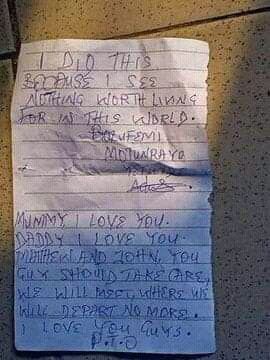 I DID THIS
BECAUSE I SEE
NOTHING WORTH LIVING
FOR IN THIS WORLD.
MOTUNRAYO
MUMMY I LOVE YOU.
DADDY I LOVE YOU.
MATHEW AND JOHN, YOU
GUY SHOULD TAKE CARE,
WE WILL MEET, WHERE WE
WILL DEPART NO MORE.
I LOVE YOU GUYS.
P.T.O